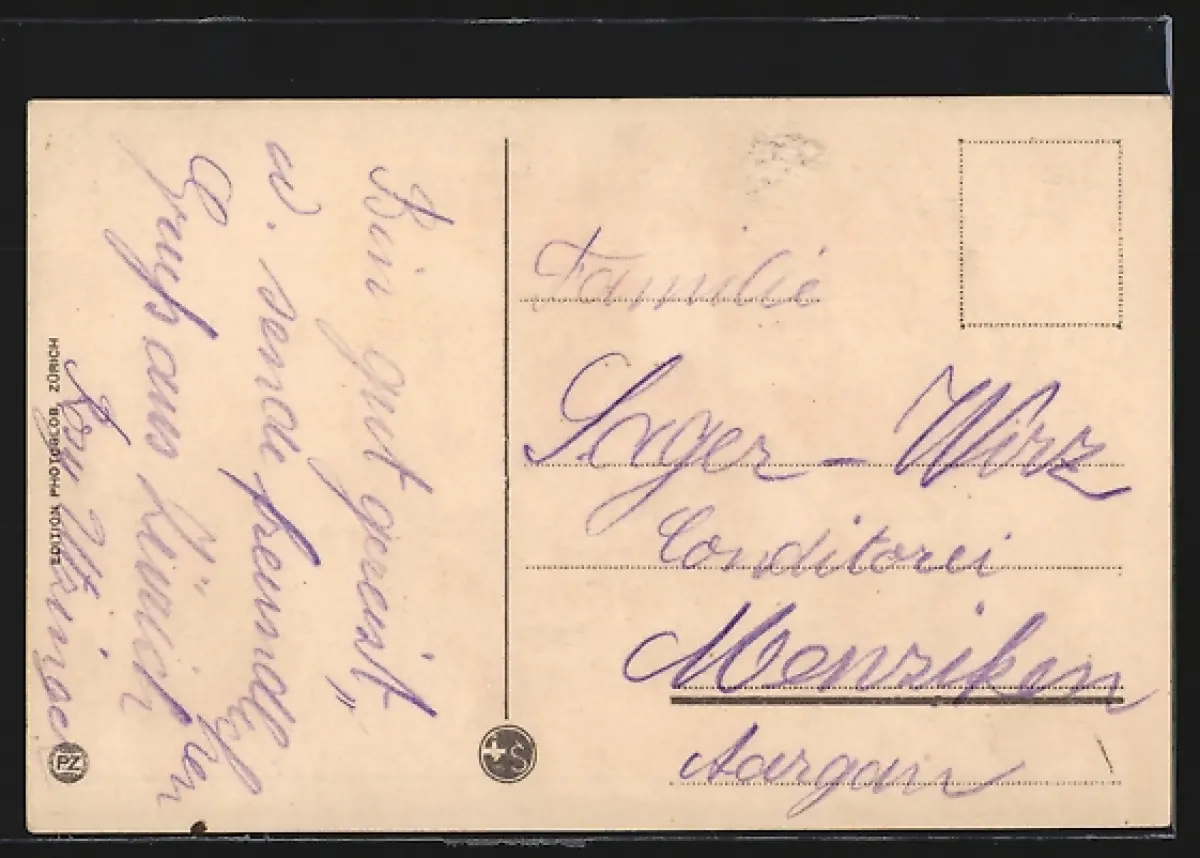 Bin gut gereist,
u. sende freundlichen
Gruß aus Zürich
EDITION PHOTOGLOB, ZÜRICH
PZ
S
Familie
Sager - Wirz
Conditorei
Menziken
Aargau